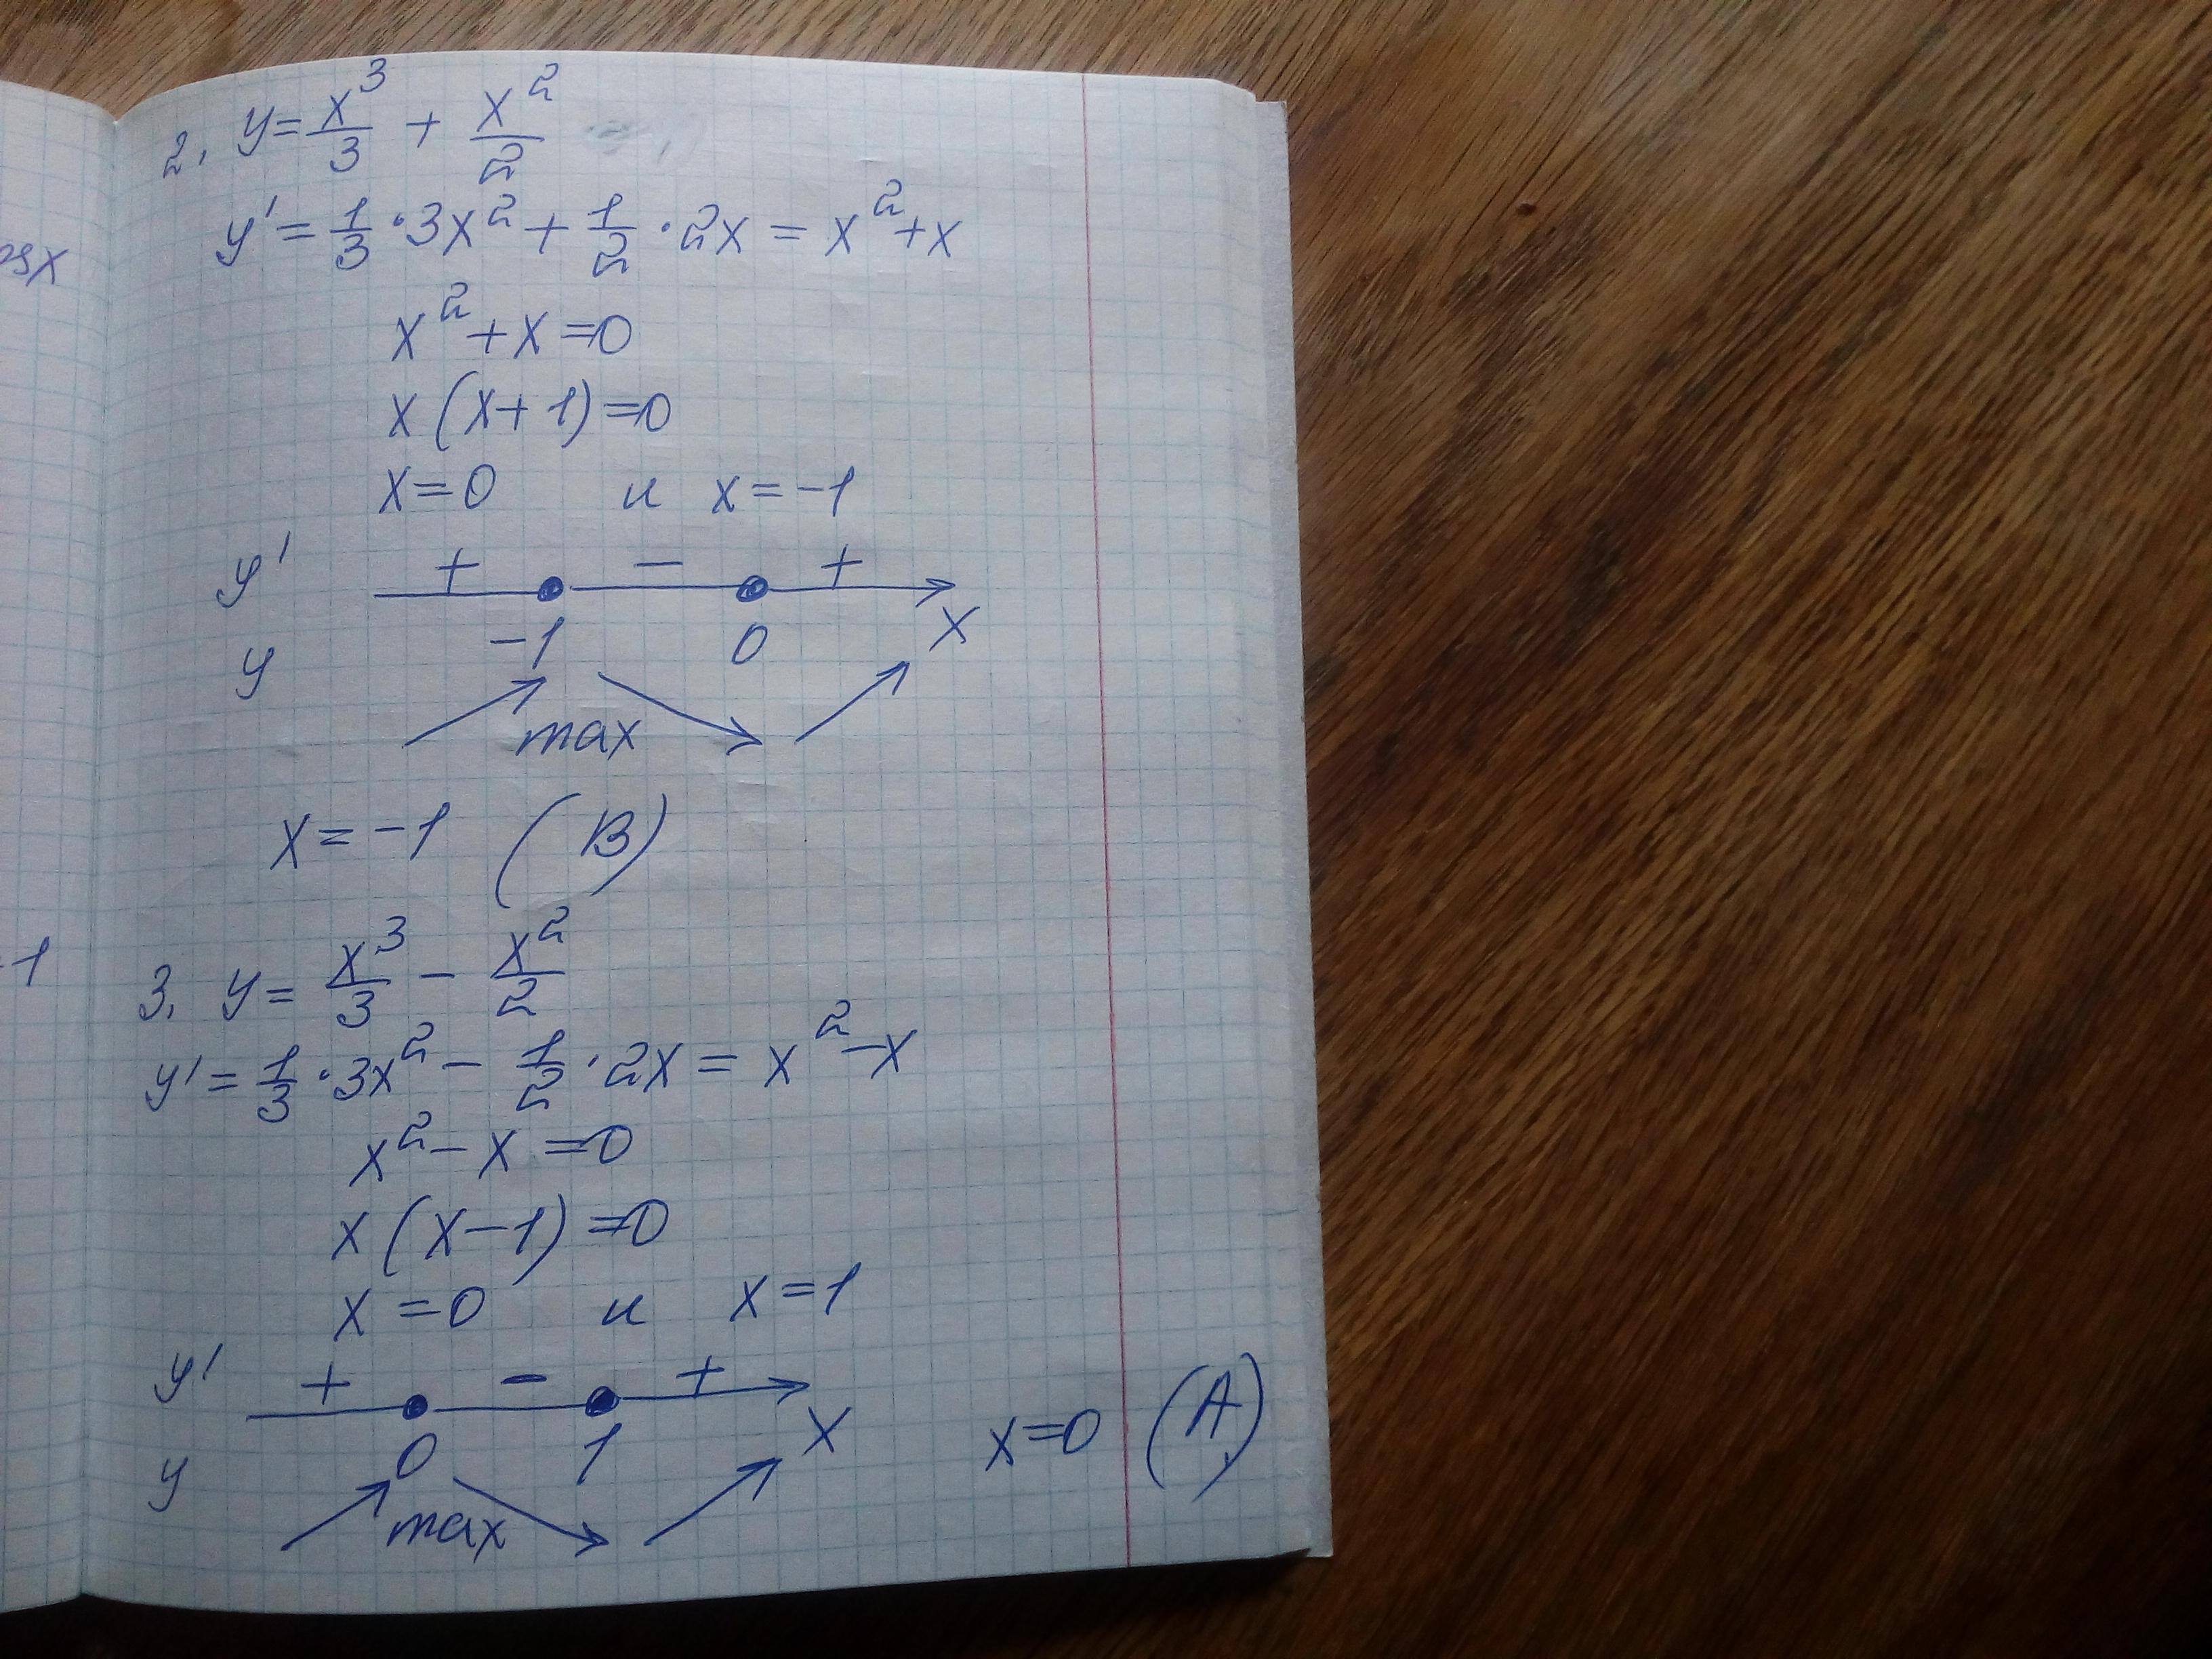 2. y = x³/3 + x²/2
y' = 1/3 · 3x² + 1/2 · 2x = x² + x
x² + x = 0
x (x + 1) = 0
x = 0 и x = -1
y' + - +
-1 0 x
y
max
x = -1 (В)
3. y = x³/3 - x²/2
y' = 1/3 · 3x² - 1/2 · 2x = x² - x
x² - x = 0
x (x - 1) = 0
x = 0 и x = 1
y' + - +
0 1 x
y
max
x = 0 (А)
-1